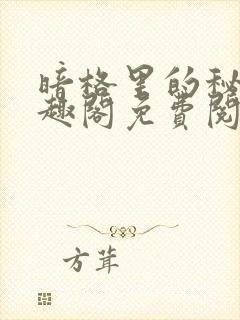 暗格里的秘
趣阁免费阅
方茸